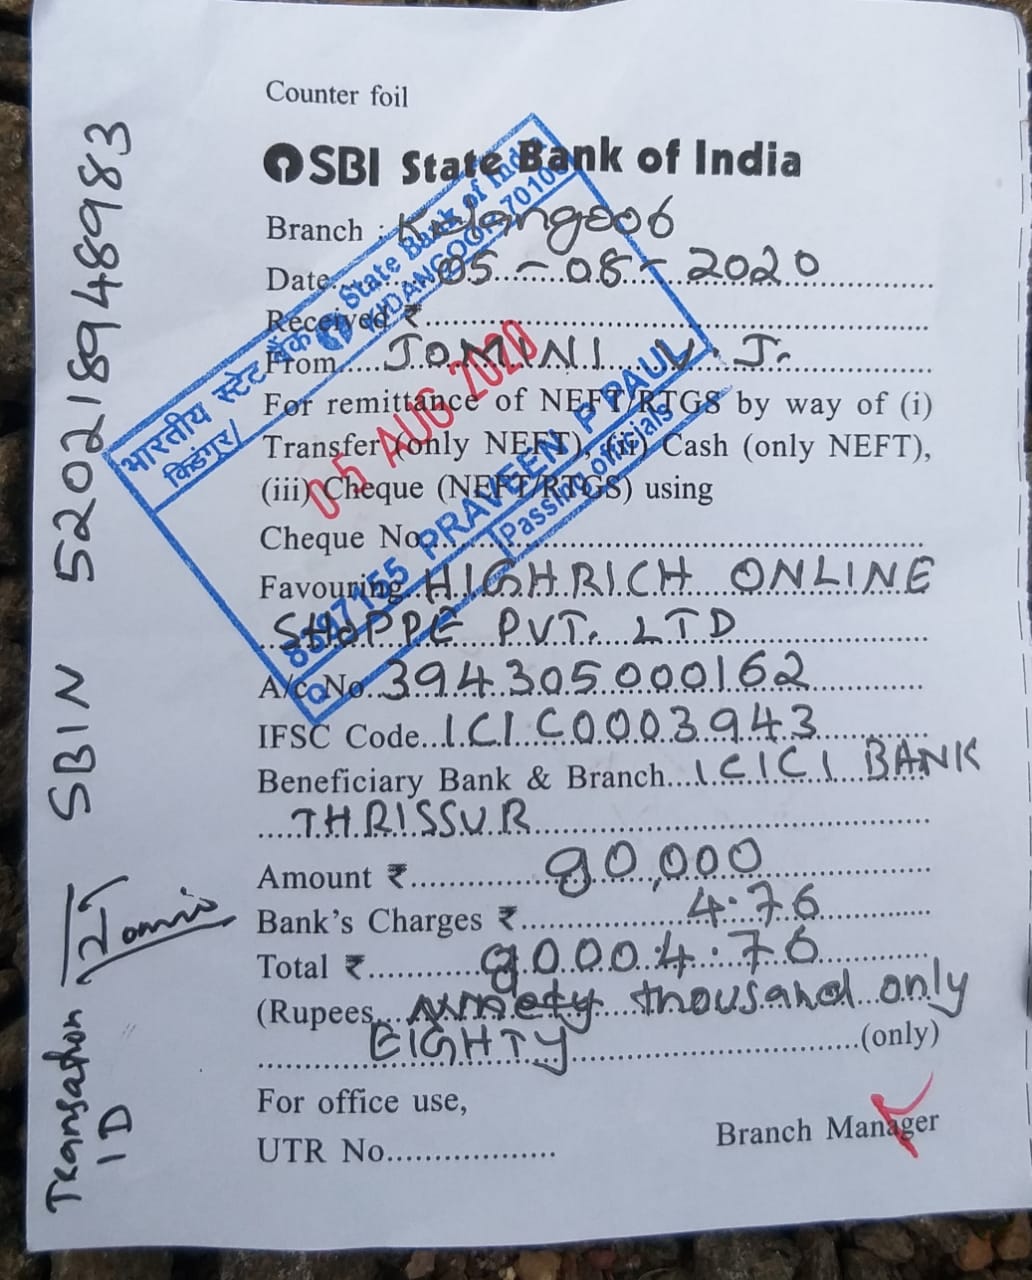 Counter foil
SBI State Bank of India
Branch : Kidangoor
Date 05-08-2020
Received ₹
From JOMINI V J.
For remittance of NEFT/RTGS by way of (i)
Transfer (only NEFT), (ii) Cash (only NEFT),
(iii) Cheque (NEFT/RTGS) using
Cheque No.
Favouring HIGHRICH ONLINE
SHOPPE PVT. LTD
A/c No. 394305000162
IFSC Code ICIC0003943
Beneficiary Bank & Branch ICICI BANK
THRISSUR
Amount ₹ 80,000
Bank's Charges ₹ 4.76
Total ₹ 80004.76
(Rupees ninety thousand only
EIGHTY (only)
For office use,
UTR No.
Branch Manager
Transation ID SBIN 520218948983
भारतीय स्टेट बैंक State Bank of India
किडंगूर/ KIDANGOOR-70106
05 AUG 2020
PRAVEEN P PAUL
Passing officials